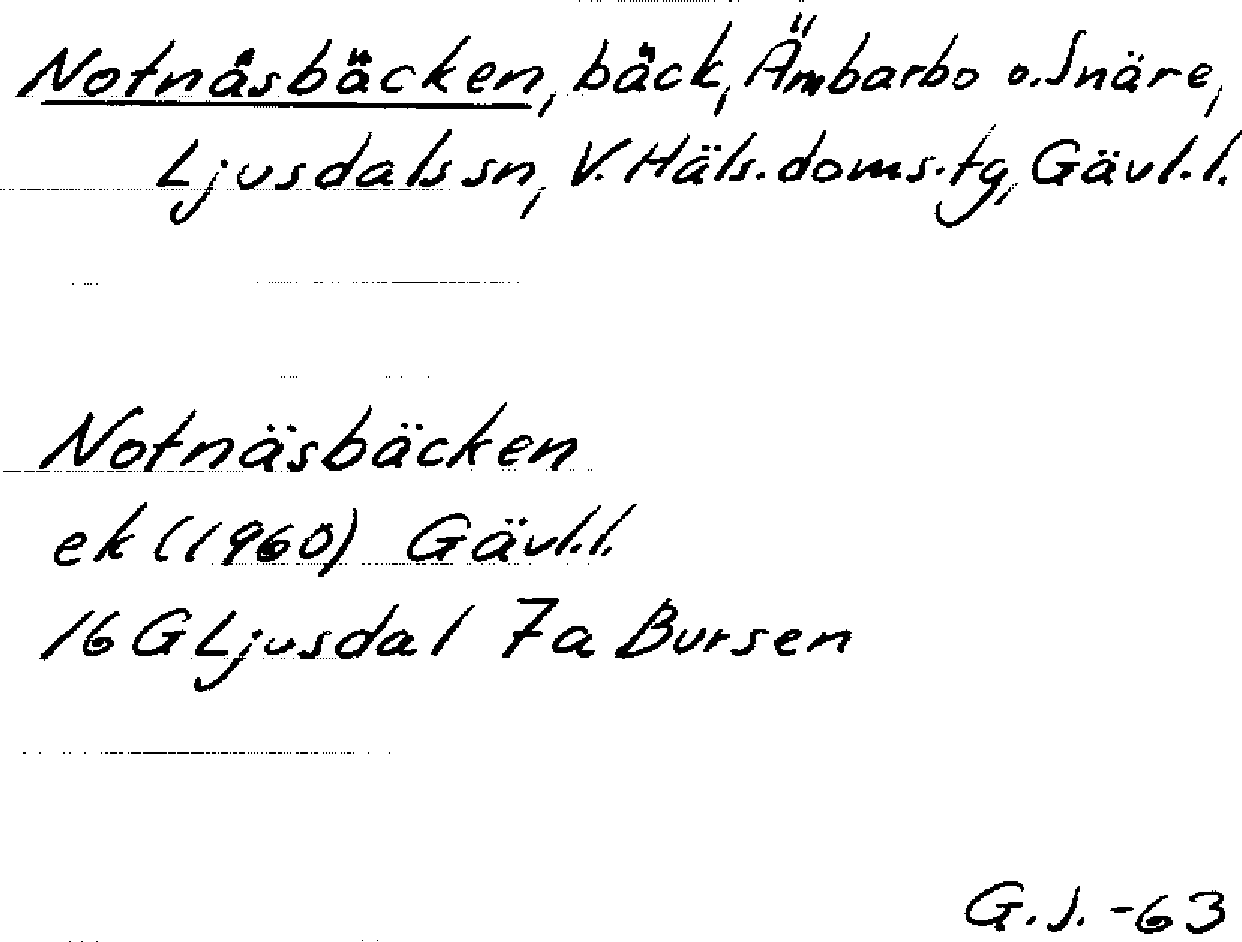 Notnäsbäcken, bäck, Ämbarbo o. Snäre,
Ljusdals sn, V. Häls. doms. tg, Gävl. l.
Notnäsbäcken
ek (1960) Gävl. l.
16 G Ljusdal 7a Bursen
G. J. -63